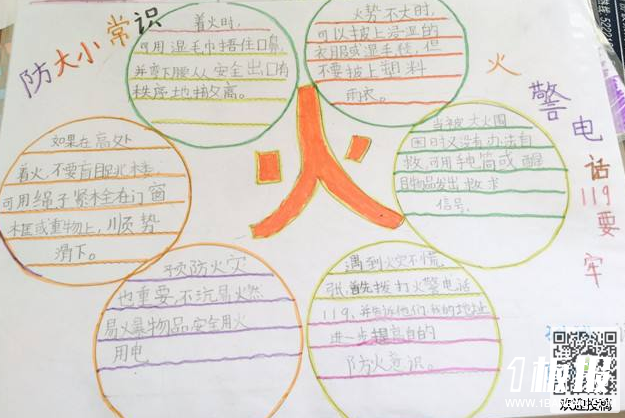 防火小常识
着火时,
可用湿毛巾捂住口鼻,
并弯下腰从安全出口有
秩序地撤离。
火势不大时,
可以披上浸湿的
衣服或湿毛毯,但
不要披上塑料
雨衣。
火
火警电话119要牢
如果在高处
着火,不要盲目跳楼
可用绳子紧栓在门窗
框或重物上,顺势
滑下。
当被大火围
困时又没有办法自
救,可用手电筒或醒
目物品发出求救
信号。
预防火灾
也重要,不玩易火燃
易火暴物品,安全用火
用电
遇到火灾不慌
张,首先拨打火警电话
119、并告诉他们
的地址
进一步提高自的
防火意识。
1板报